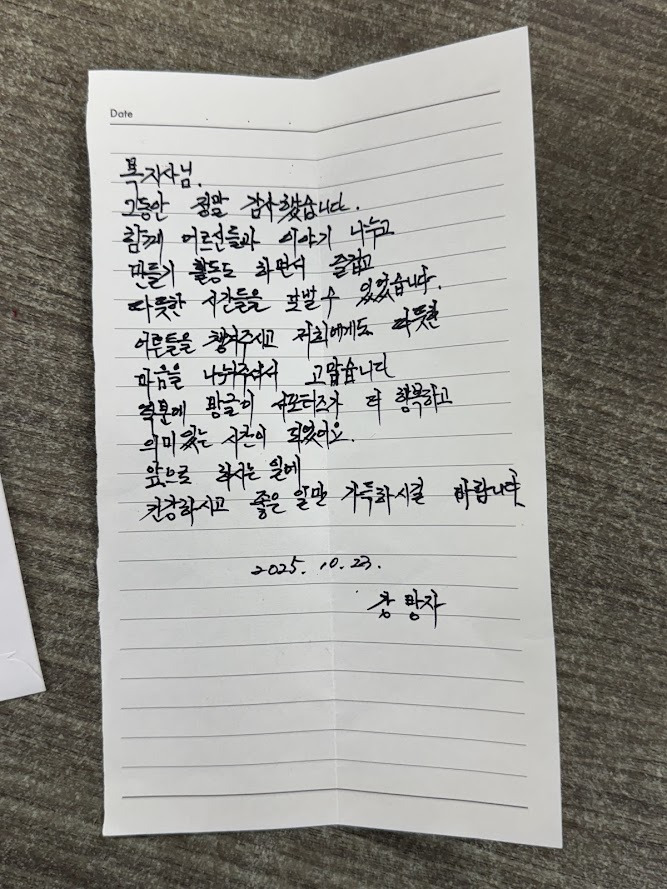 Date
복지사님.
그동안 정말 감사했습니다.
함께 어르신들과 이야기 나누고
만들기 활동도 하면서 즐겁고
따뜻한 시간들을 보낼 수 있었습니다.
어른들을 챙겨주시고 저희에게도 따뜻한
마음을 나눠주셔서 고맙습니다
덕분에 서포터즈가 더 행복하고
의미있는 시간이 되었어요.
앞으로 하시는 일에
건강하시고 좋은 일만 가득하시길 바랍니다
2025. 10. 23.